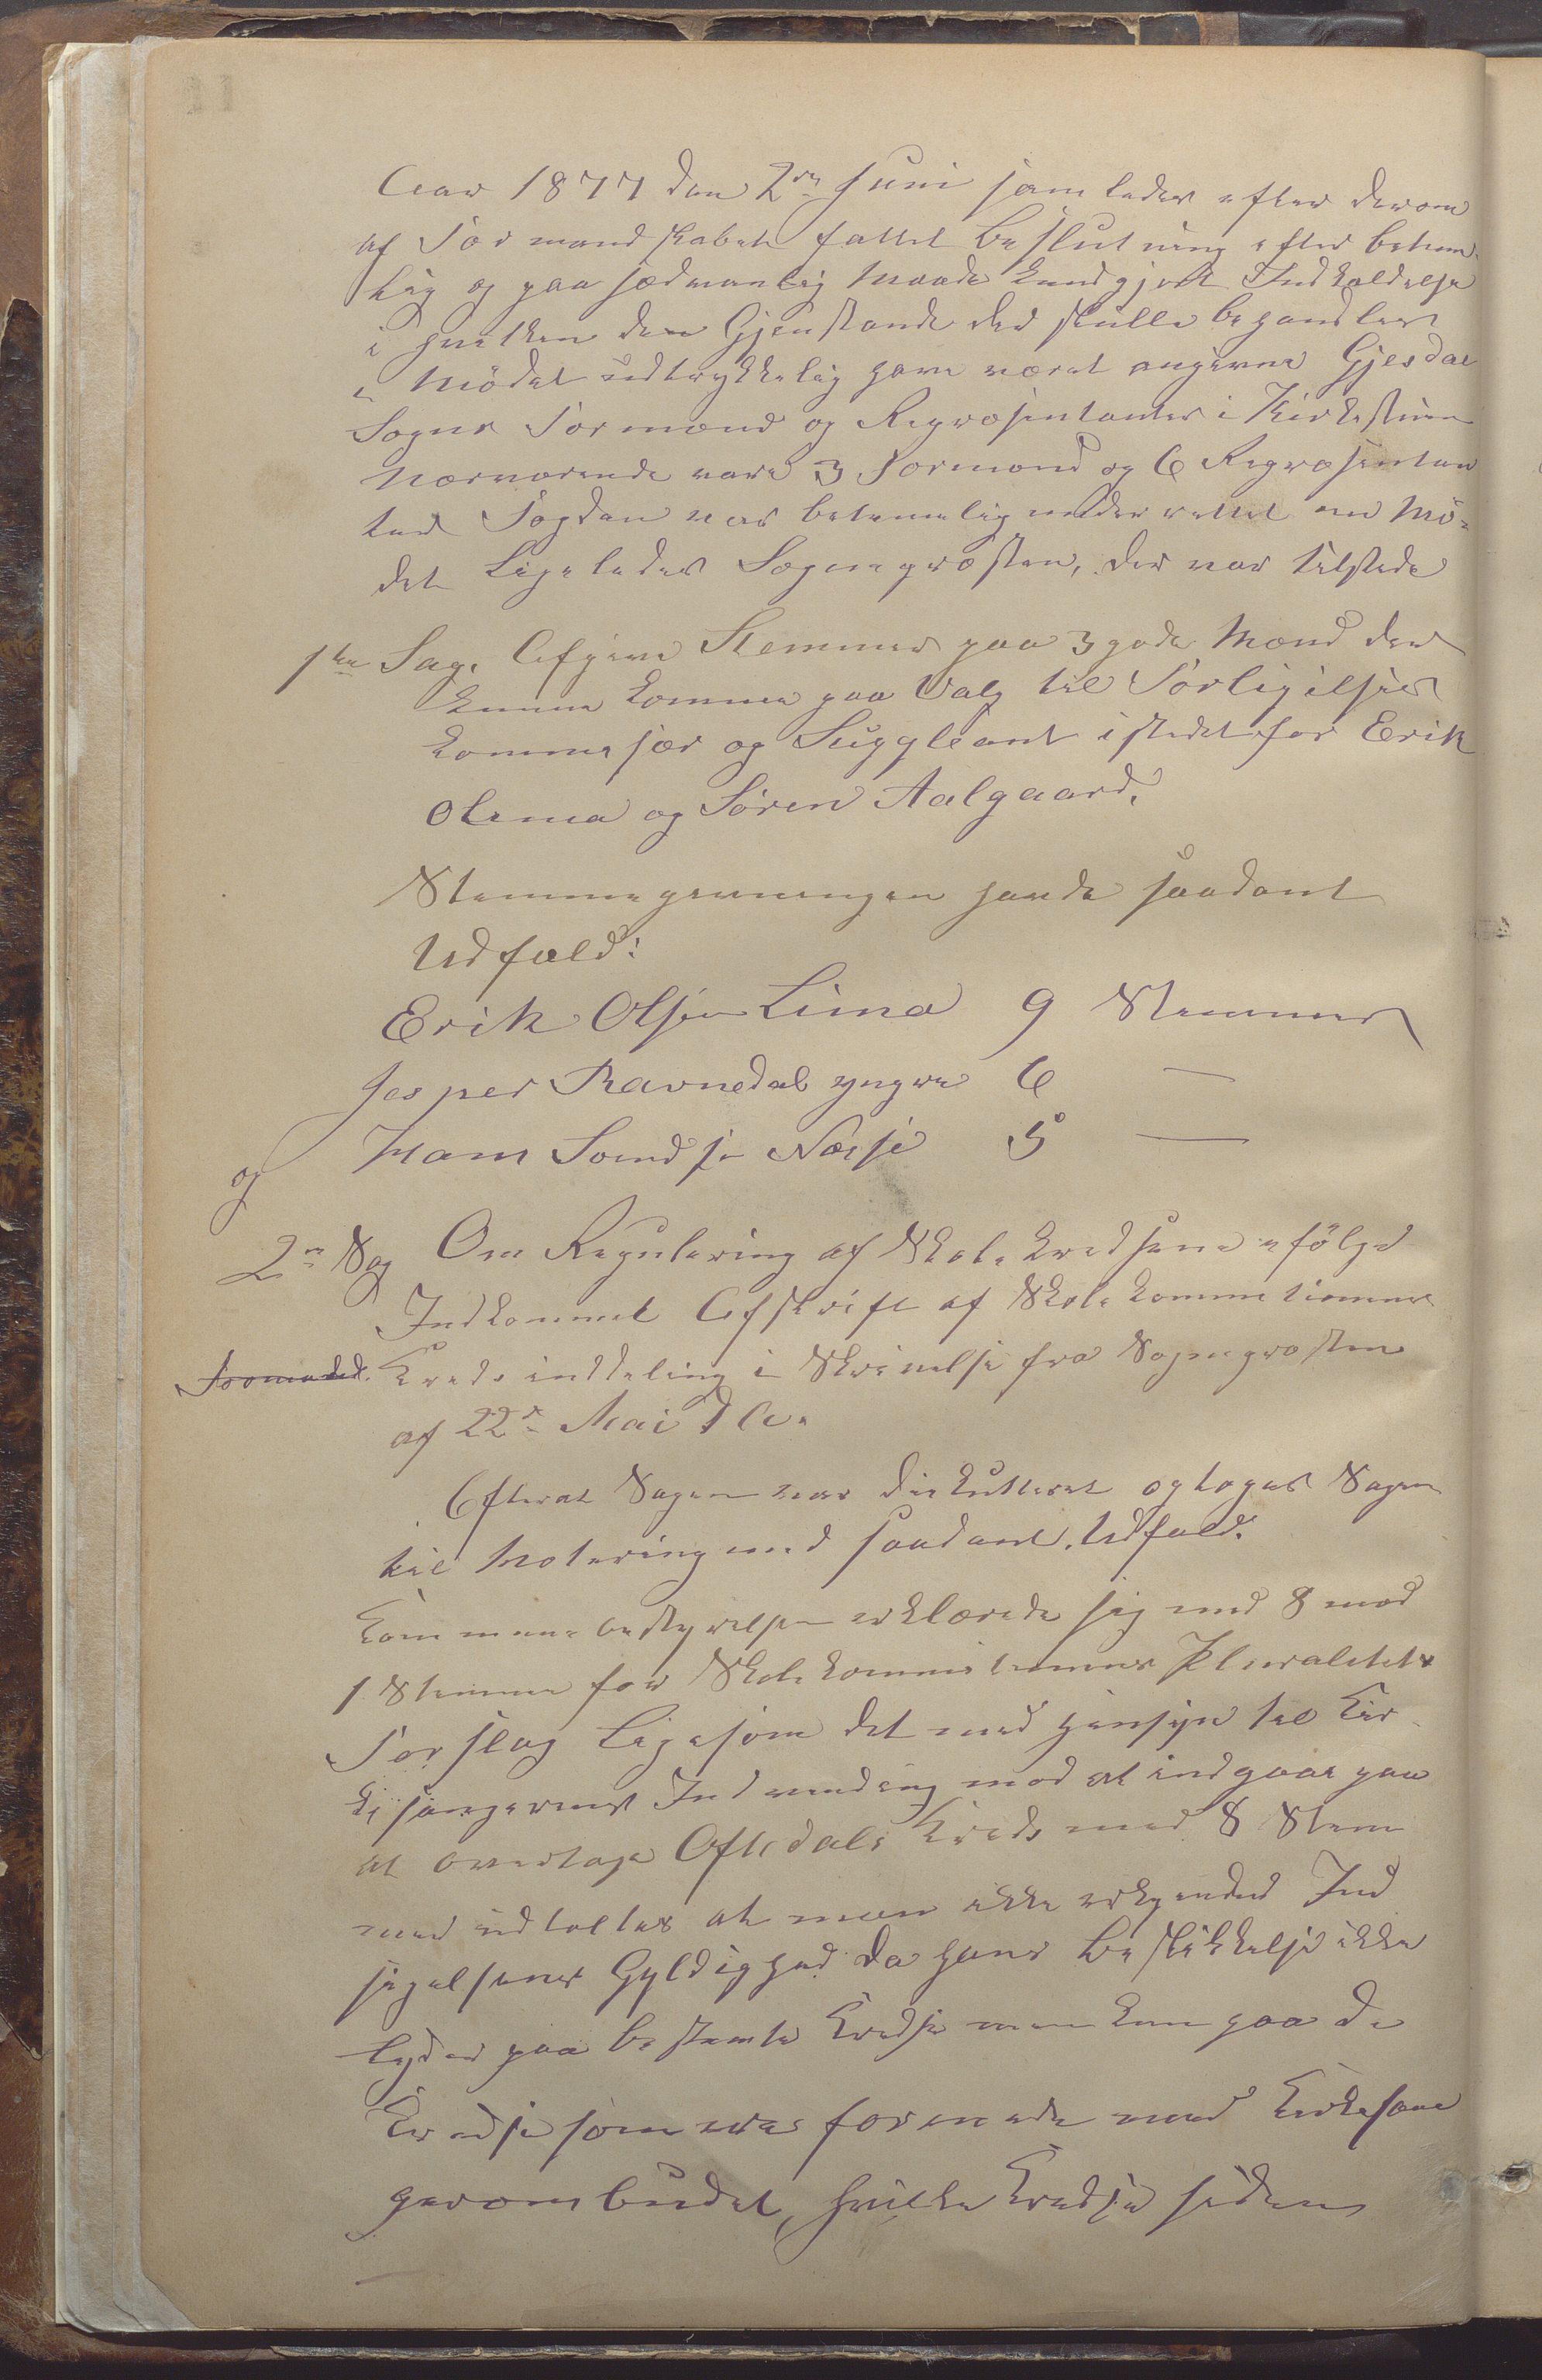 Aar 1877 den 2den Juni samledes efter derom
af Formandskabet fattet Beslutning efter betime
lig og paa sædvanlig Maade kundgjort Indkaldelse
i hvilken den Gjenstande der skulle behandles
i Mödet udtrykkelig have været angivne Gjesdal
Sogns Formænd og Repræsentanter i Kirkestuen
Nærværende vare 3 Formænd og 6 Repræsentan
ter Fogden var betimelig underrettet om Mö-
det Ligeledes Sognepræsten, der var tilstede
1ste Sag. Afgive Stemmer paa 3 gode Mænd der
kunne komme paa Valg til Forligelses
kommesær og Suppleant istedetfor Erik
O Lima og Sören Aalgaard.
Stemmegivningen havde saadant
Udfald:
Erik Olsen Lima 9 Stemmer
Jesper Ravndal yngre 6 —
og Hans Svendsen Næsse 5 —
2en Sag Om Regulering af Skolekredsene efölge
Indkommet Afskrift af Skolekommissionens
Formænd. Kredsinddeling i Skrivelse fra Sognepræsten
af 22de Mai d A.
Efterat Sagen var diskutteret optoges Sagen
til Votering med saadant Udfald.
Kommunebestyrelsen erklærede sig med 8 mod
1 Stemme for Skolekommissionens Pluralitets
Forslag Ligesom det med Hensyn til Kir
kesangerens Indvending mod at indgaa paa
at overtage Oftedals Kreds med 8 Stem
mer udtaltes at man ikke erkjender Ind
sigelsens Gyldighed da hans Beskikkelse ikke
lyder paa bestemte Kredse men kun paa de
Kredse som ere forenede med Kirkesan
gerombudet, hvilke Kredse siden